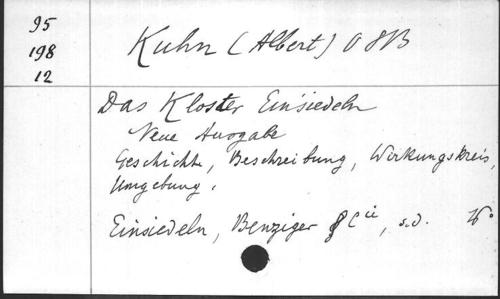 95
198
12
Kuhn (Albert) OSB
Das Kloster Einsiedeln
Neue Ausgabe
Geschichte, Beschreibung, Wirkungskreis,
Umgebung.
Einsiedeln, Benziger & Cie, s.d.